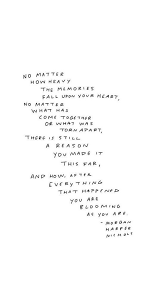 NO MATTER
HOW HEAVY
THE MEMORIES
FALL UPON YOUR HEART,
NO MATTER
WHAT HAS
COME TOGETHER
OR WHAT WAS
TORN APART,
THERE IS STILL
A REASON
YOU MADE IT
THIS FAR,
AND HOW, AFTER
EVERYTHING
THAT HAPPENED
YOU ARE
BLOOMING
AS YOU ARE.
- MORGAN
HARPER
NICHOLS